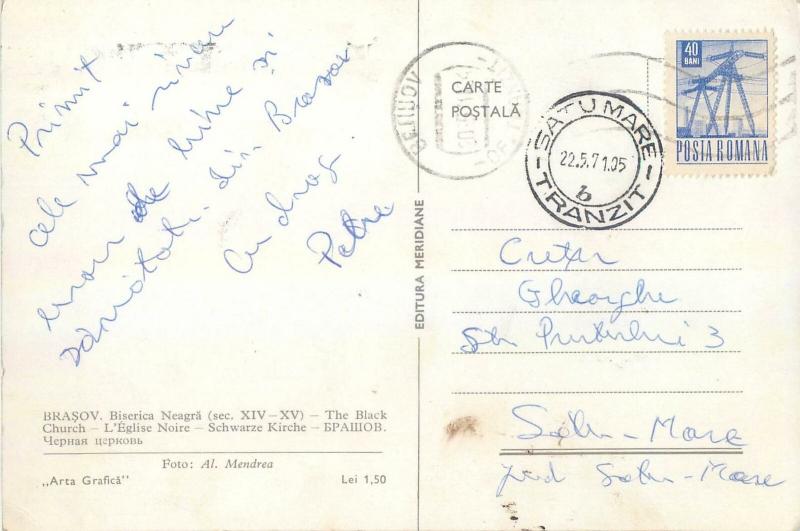 Primit
cele mai
urari de bine și
sănătate din Brasov
Cu drag
Petre
BRAȘOV. Biserica Neagră (sec. XIV–XV) – The Black
Church – L'Église Noire – Schwarze Kirche – БРАШОВ.
Черная церковь
Foto: Al. Mendrea
„Arta Grafică"
Lei 1,50
EDITURA MERIDIANE
CARTE
POȘTALĂ
SATU MARE
22.5.71.05
b
TRANZIT
40
BANI
POSTA ROMANA
Cretar
Gheorghe
Str Prutului 3
Satu-Mare
jud Satu-Mare